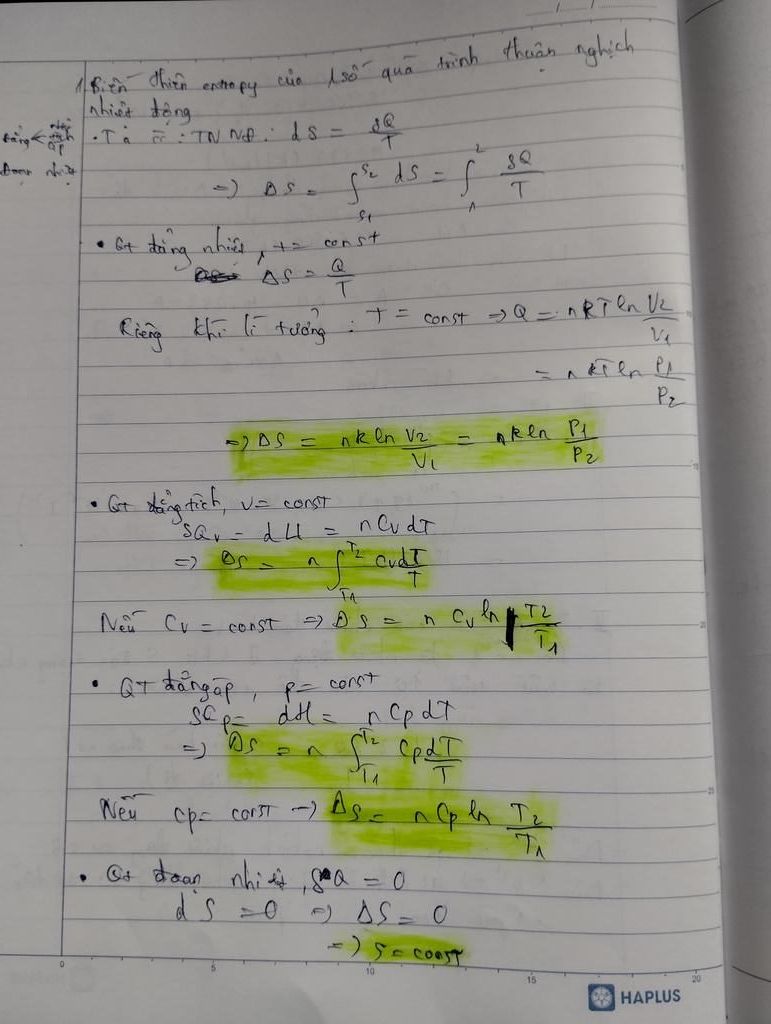 1. Biến thiên entropy của 1 số quá trình thuận nghịch
nhiệt động
• Ta có: TN NĐ: dS = δQ/T
đẳng < nhiệt tích áp
Đoạn nhiệt
=> ΔS = ∫_{S1}^{S2} dS = ∫_1^2 δQ/T
• Qt đẳng nhiệt, T = const
ΔS = Q/T
Riêng khí lí tưởng: T = const => Q = nRT ln V2/V1
= nRT ln P1/P2
=> ΔS = nR ln V2/V1 = nR ln P1/P2
• Qt đẳng tích, V = const
δQv = dU = nCv dT
=> ΔS = n ∫_{T1}^{T2} Cv dT/T
Nếu Cv = const => ΔS = n Cv ln T2/T1
• QT đẳng áp, p = const
δQp = dH = n Cp dT
=> ΔS = n ∫_{T1}^{T2} Cp dT/T
Nếu Cp = const -> ΔS = n Cp ln T2/T1
• Qt đoạn nhiệt, δQ = 0
dS = 0 => ΔS = 0
=> S = const
0 5 10 15 20
HAPLUS